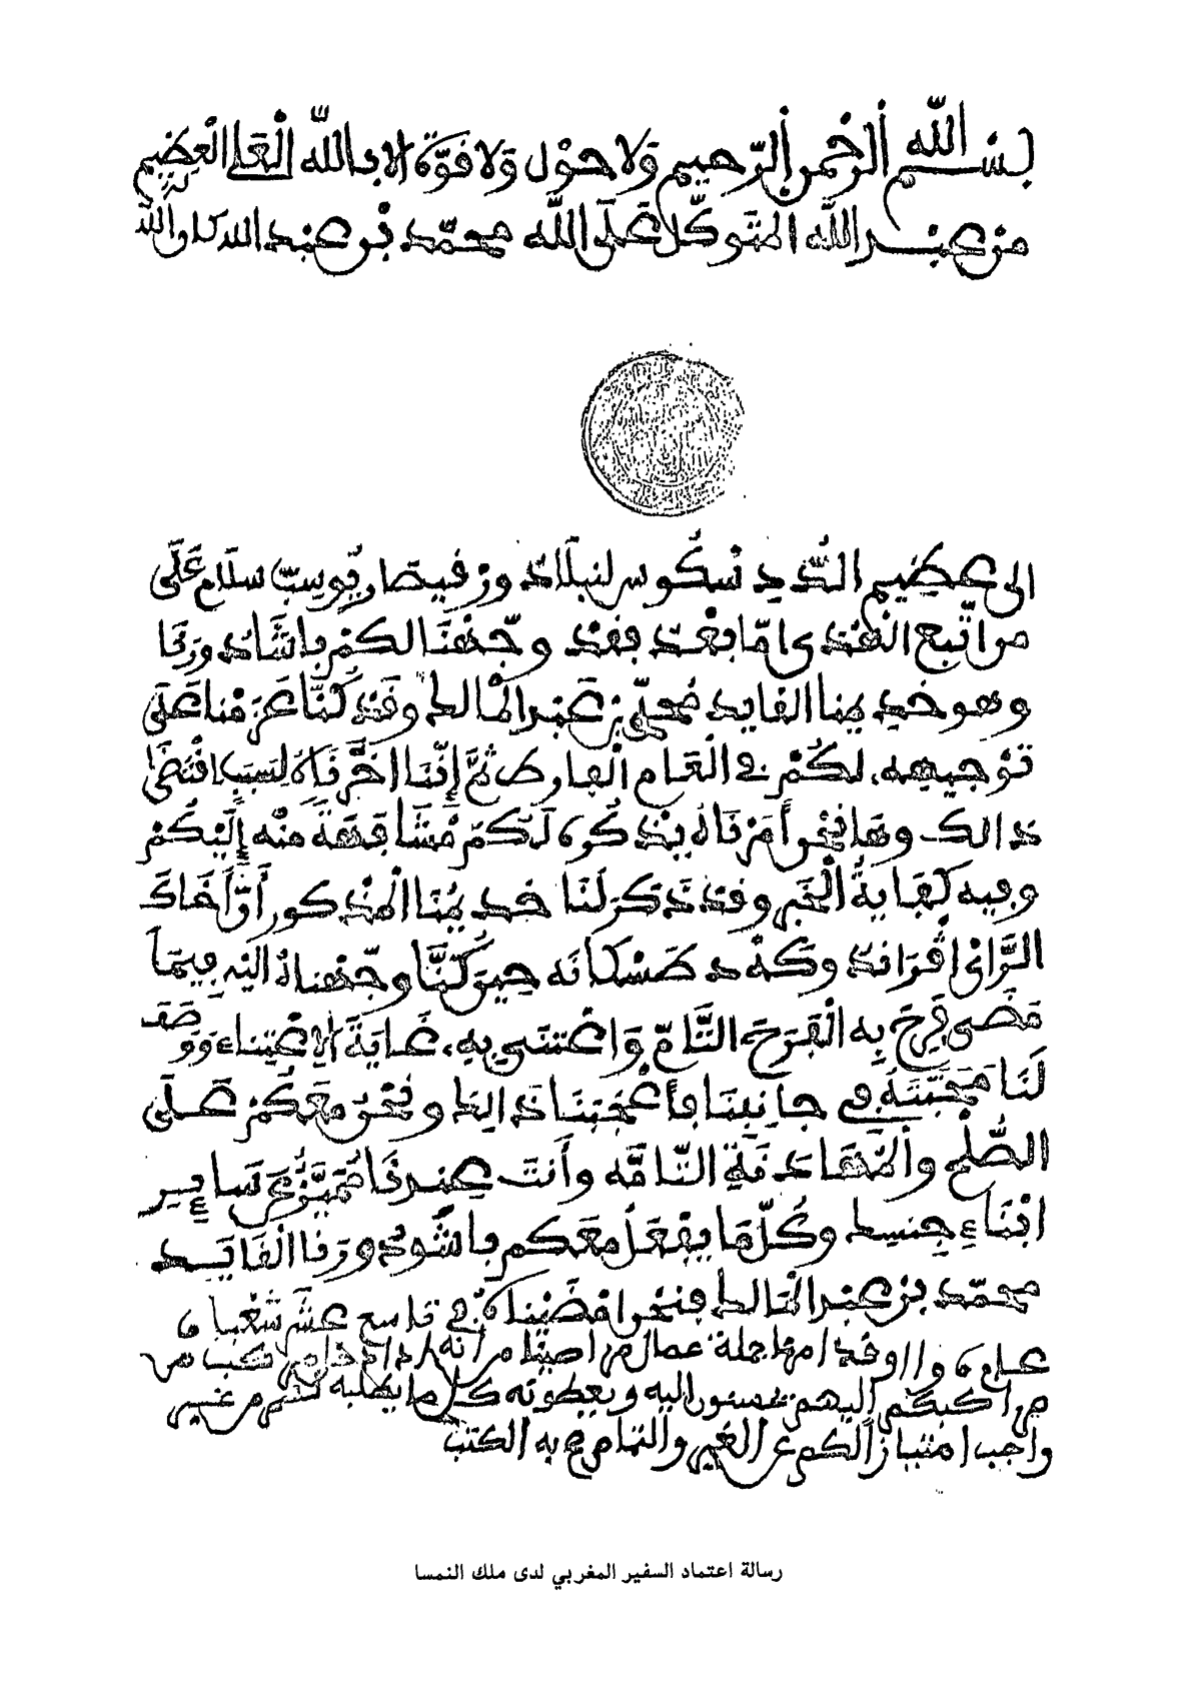 بسم الله الرحمن الرحيم ولا حول ولا قوة الا بالله العلي العظيم
من عبد الله المتوكل على الله محمد بن عبد الله كان الله له
الى عظيم الدد سكوس لنبلاد ور فيصار يوسب سلام على
من اتبع الهدى اما بعد فقد وجهنا لكم باشادورنا
وهو خديمنا القايد محمد بن عبد المالك وقد كنا عزمنا على
توجيهه لكم في العام الفارط ثم إننا اخرناه لسبب اقتضى
ذالك وها نحن أمرناه يذكره لكم مشافهة منه إليكم
وفيه كفاية الخبر وقد ذكر لنا خديمنا المذكور أن أخاك
الرانى اقراندد وكه د طسكانه حين كنا وجهناه اليه فيما
مضى فرح به الفرح التام واعتنى به غاية الاعتناء ووصف
لنا محبته في جانبنا فأعجبنا ذالك ونحن معكم على
الصلح والمهادنة التامه وأنت عندنا مميز عن ساير
ابناء جنسك وكل ما يفعل معكم باشدورنا القايد
محمد بن عبد المالك فنحن امضيناه في تاسع عشر شعبان
عـام وقد امرنا جملة عمال مراصينا من أنه اذا دخل مركب من
مراكبكم إليهم يحسنون اليه ويعطونه كل ما يطلبه منهم من غير
واجب امتيازا لكم عن الغير والتمام في به الكتب
رسالة اعتماد السفير المغربي لدى ملك النمسا